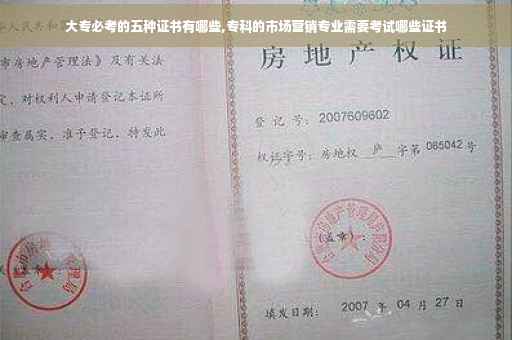 大专必考的五种证书有哪些,专科的市场营销专业需要考试哪些证书
人民共和
市房地产管理法》及有关法
定，对权利人申请登记本证所
审查属实，准予登记，特发此
房地产权证
登记号：2007609602
权证字号：房地权 庐 字第 085042 号
(盖章)：
填发日期： 2007 年 04 月 27 日